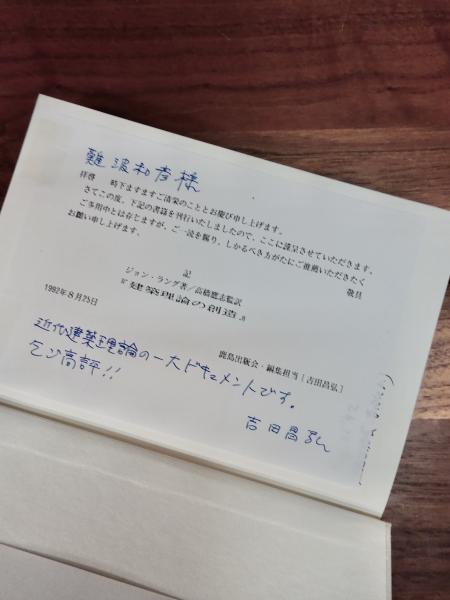 難波和彦様
拝啓　時下ますますご清栄のこととお慶び申し上げます。
さてこの度、下記の書籍を刊行いたしましたので、ここに謹呈させていただきます。
ご多用中とは存じますが、ご一読を賜り、しかるべき方がたにご推薦いただきたく
お願い申し上げます。
敬具
記
ジョン・ラング著／高橋鷹志監訳
『建築理論の創造』
1992年8月25日
鹿島出版会・編集担当［吉田昌弘］
近代建築理論の一大ドキュメントです。
乞ご高評!!
吉田昌弘